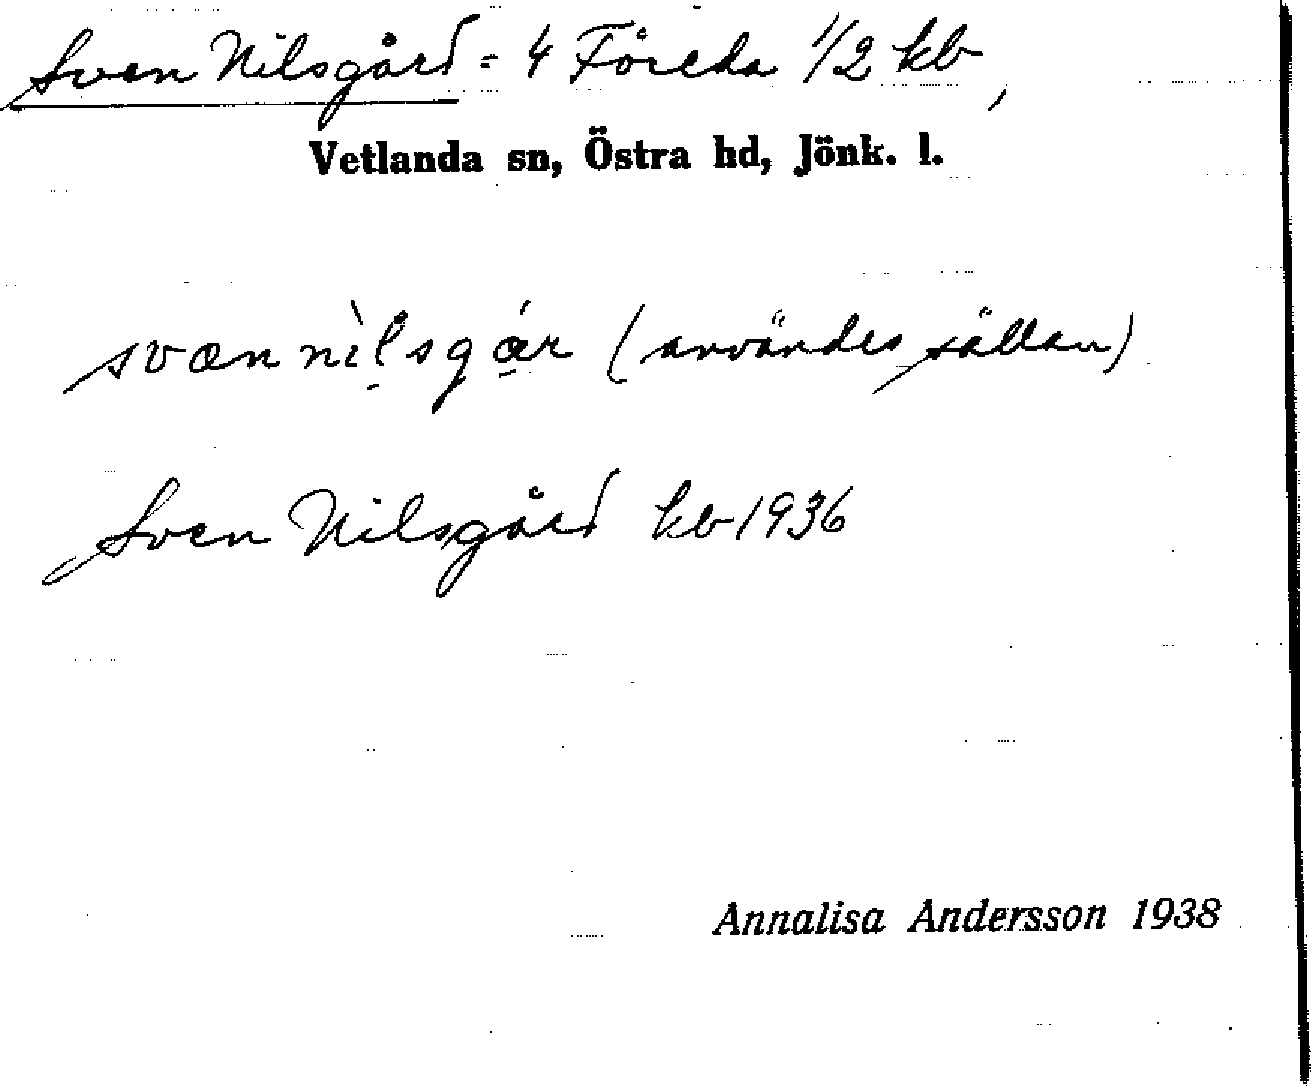 Sven Nilsgård = 4 Föreda 1/2 kb,
Vetlanda sn, Östra hd, Jönk. l.
svæn nìlsgár (användes sällan)
Sven Nilsgård kb 1936
Annalisa Andersson 1938